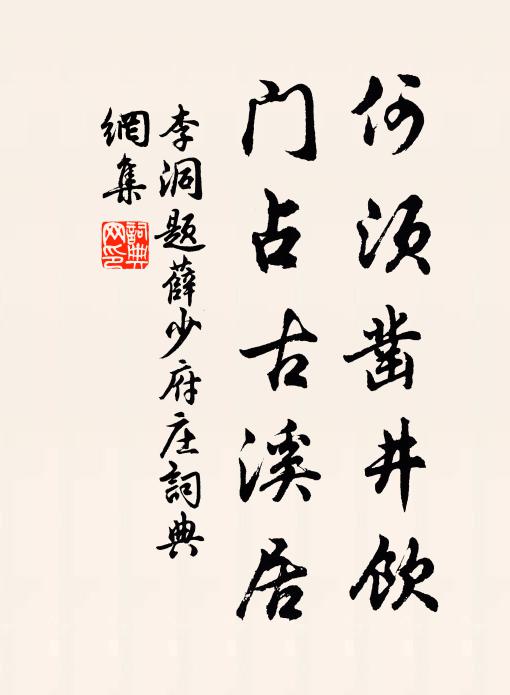 何须凿井饮
门占古溪居
李洞题薛少府庄詞典
網集
詞典
网印